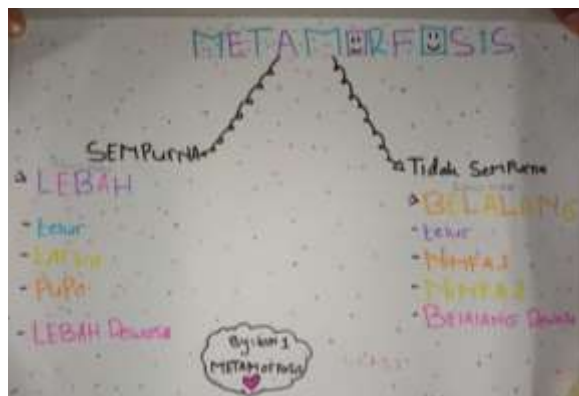 METAMORFOSIS
SEMPURNA
LEBAH
- telur
- LARVA
- PuPa
- LEBAH Dewasa
Tidak SemPurna
BELALANG
- telur
- NIMFA 1
- NIMFA 2
- BelAlANG Dewasa
By: kim 1
METAMORFOSIS